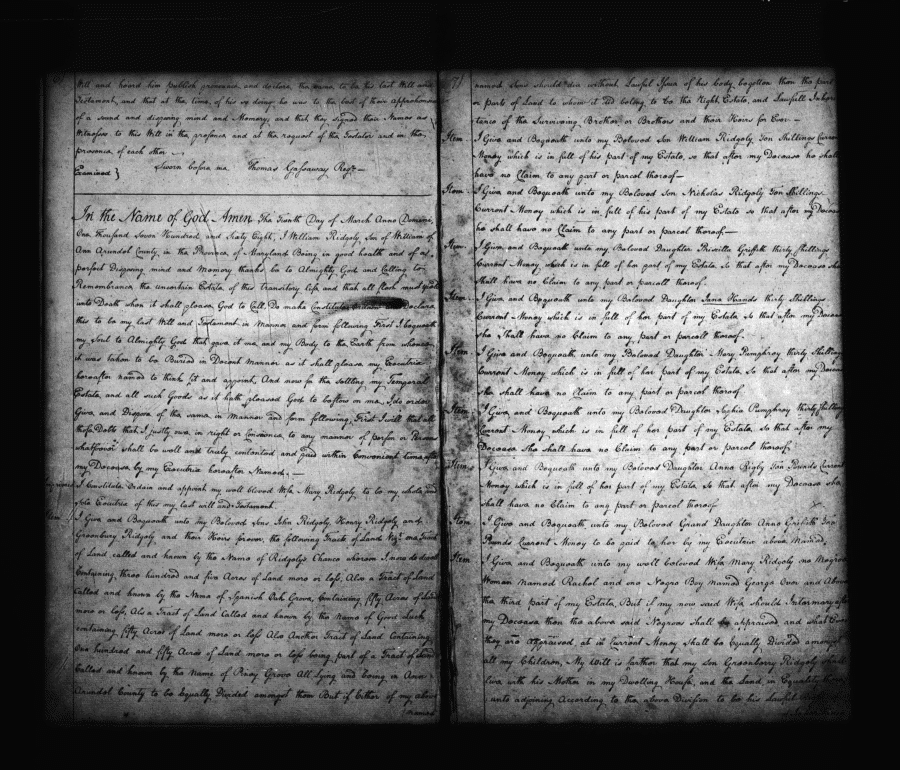 Will and heard him publish pronounce and declare the same to be his last Will and
Testament, and that at the time of his so doing he was to the best of their Apprehension
of a sound and disposing mind and Memory, and that they signed their Names as
Witnesses to this Will in the presence and at the request of the Testator and in the
presence of each other
Examined } Sworn before me Thomas Gassaway Regr.
In the Name of God Amen The Tenth Day of March Anno Domini
One thousand Seven Hundred and Sixty Eight, I William Ridgely Son of William of
Ann Arundel County in the Province of Maryland Being in good health and of a
perfect Disposing mind and Memory thanks be to Almighty God and Calling to
Remembrance the uncertain Estate of this transitory life and that all flesh must yield
unto Death when it shall please God to Call. Do make Constitute Declare
this to be my last Will and Testament in Manner and form following First I bequeath
my Soul to Almighty God that gave it me, and my Body to the Earth from whence
it was taken to be Buried in Decent Manner as it shall please my Executrix
hereafter named to think fit and appoint, And now for the settling my Temporal
Estate, and all such Goods as it hath pleased God to bestow on me, I do order
Give, and Dispose of the same in Manner and form following, First I will that all
those Debts that I justly owe in right or Conscience to any manner of person or Persons
whatsoever shall be well and truly contented and paid within Convenient time after
my Decease by my Executrix hereafter Named.
I Constitute Ordain and appoint my well beloved Wife Mary Ridgely to be my whole and
sole Executrix of this my last will and Testament.
I Give and Bequeath unto my Beloved Sons John Ridgely Henry Ridgely and
Greenbury Ridgely and their Heirs forever, the following Tracts of Land Viz. one Tract
of Land called and known by the Name of Ridgelys Chance whereon I now do dwell
Containing three hundred and five Acres of Land more or less, Also a Tract of Land
Called and known by the Name of Spanish Oak Grove, Containing fifty Acres of Land
more or less, Also a Tract of Land Called and known by the Name of Good Luck
containing fifty Acres of Land more or less Also Another Tract of Land Containing
One hundred and fifty Acres of Land more or less being part of a Tract of Land
Called and known by the Name of Piney Grove All Lying and being in Ann
Arundel County to be Equally Divided amongst them But if Either of my above
named
named Sons should die without Lawful Issue of his body begotten then the part
or parts of Land to whom it did belong to be the Right Estate and Lawfull Inheri
tance of the Surviving Brother or Brothers and their Heirs for Ever
Item I Give and Bequeath unto my Beloved Son William Ridgely Ten Shillings Current
Money which is in full of his part of my Estate, so that after my Decease he shall
have no Claim to any part or parcel thereof
Item I Give and Bequeath unto my Beloved Son Nicholas Ridgely Ten Shillings
Current Money which is in full of his part of my Estate so that after my Decease
he shall have no Claim to any part or parcel thereof
Item I Give and Bequeath unto my Beloved Daughter Priscilla Griffith thirty Shillings
Current Money which is in full of her part of my Estate So that after my Decease she
Shall have no Claim to any part or parcell thereof.
Item I Give and Bequeath unto my Beloved Daughter thirty Shillings
Current Money which is in full of her part of my Estate So that after my Decease
she Shall have no Claim to any part or parcell thereof
Item I Give and Bequeath unto my Beloved Daughter Mary Pumphrey thirty Shillings
Current Money which is in full of her part of my Estate, So that after my Decease
she shall have no Claim to any part or parcel thereof
Item I Give and Bequeath unto my Beloved Daughter Sophia Pumphrey thirty Shillings
Current Money which is in full of her part of my Estate, So that after my
Decease She shall have no Claim to any part or parcel thereof
Item I Give and Bequeath unto my Beloved Daughter Anna Rigby Ten Pounds Current
Money which is in full of her part of my Estate So that after my Decease she
shall have no Claim to any part or parcel thereof
Item I Give and Bequeath unto my Beloved Grand Daughter Anne Griffith Ten
Pounds Current Money to be paid to her by my Executrix above Named
Item I Give and Bequeath unto my well beloved Wife Mary Ridgely one Negroe
Woman Named Rachel and one Negro Boy Named George Over and Above
the third part of my Estate, But if my now said Wife Should Intermarry after
my Decease then the above said Negroes Shall be appraised and what Ever
they are Appraised at in Current Money Shall be Equally Divided amongst
all my Children, My Will is farther that my Son Greenberry Ridgely shall
live with his Mother in my Dwelling House, and the Land in Equality
unto adjoining According to the above Division to be his Lawful